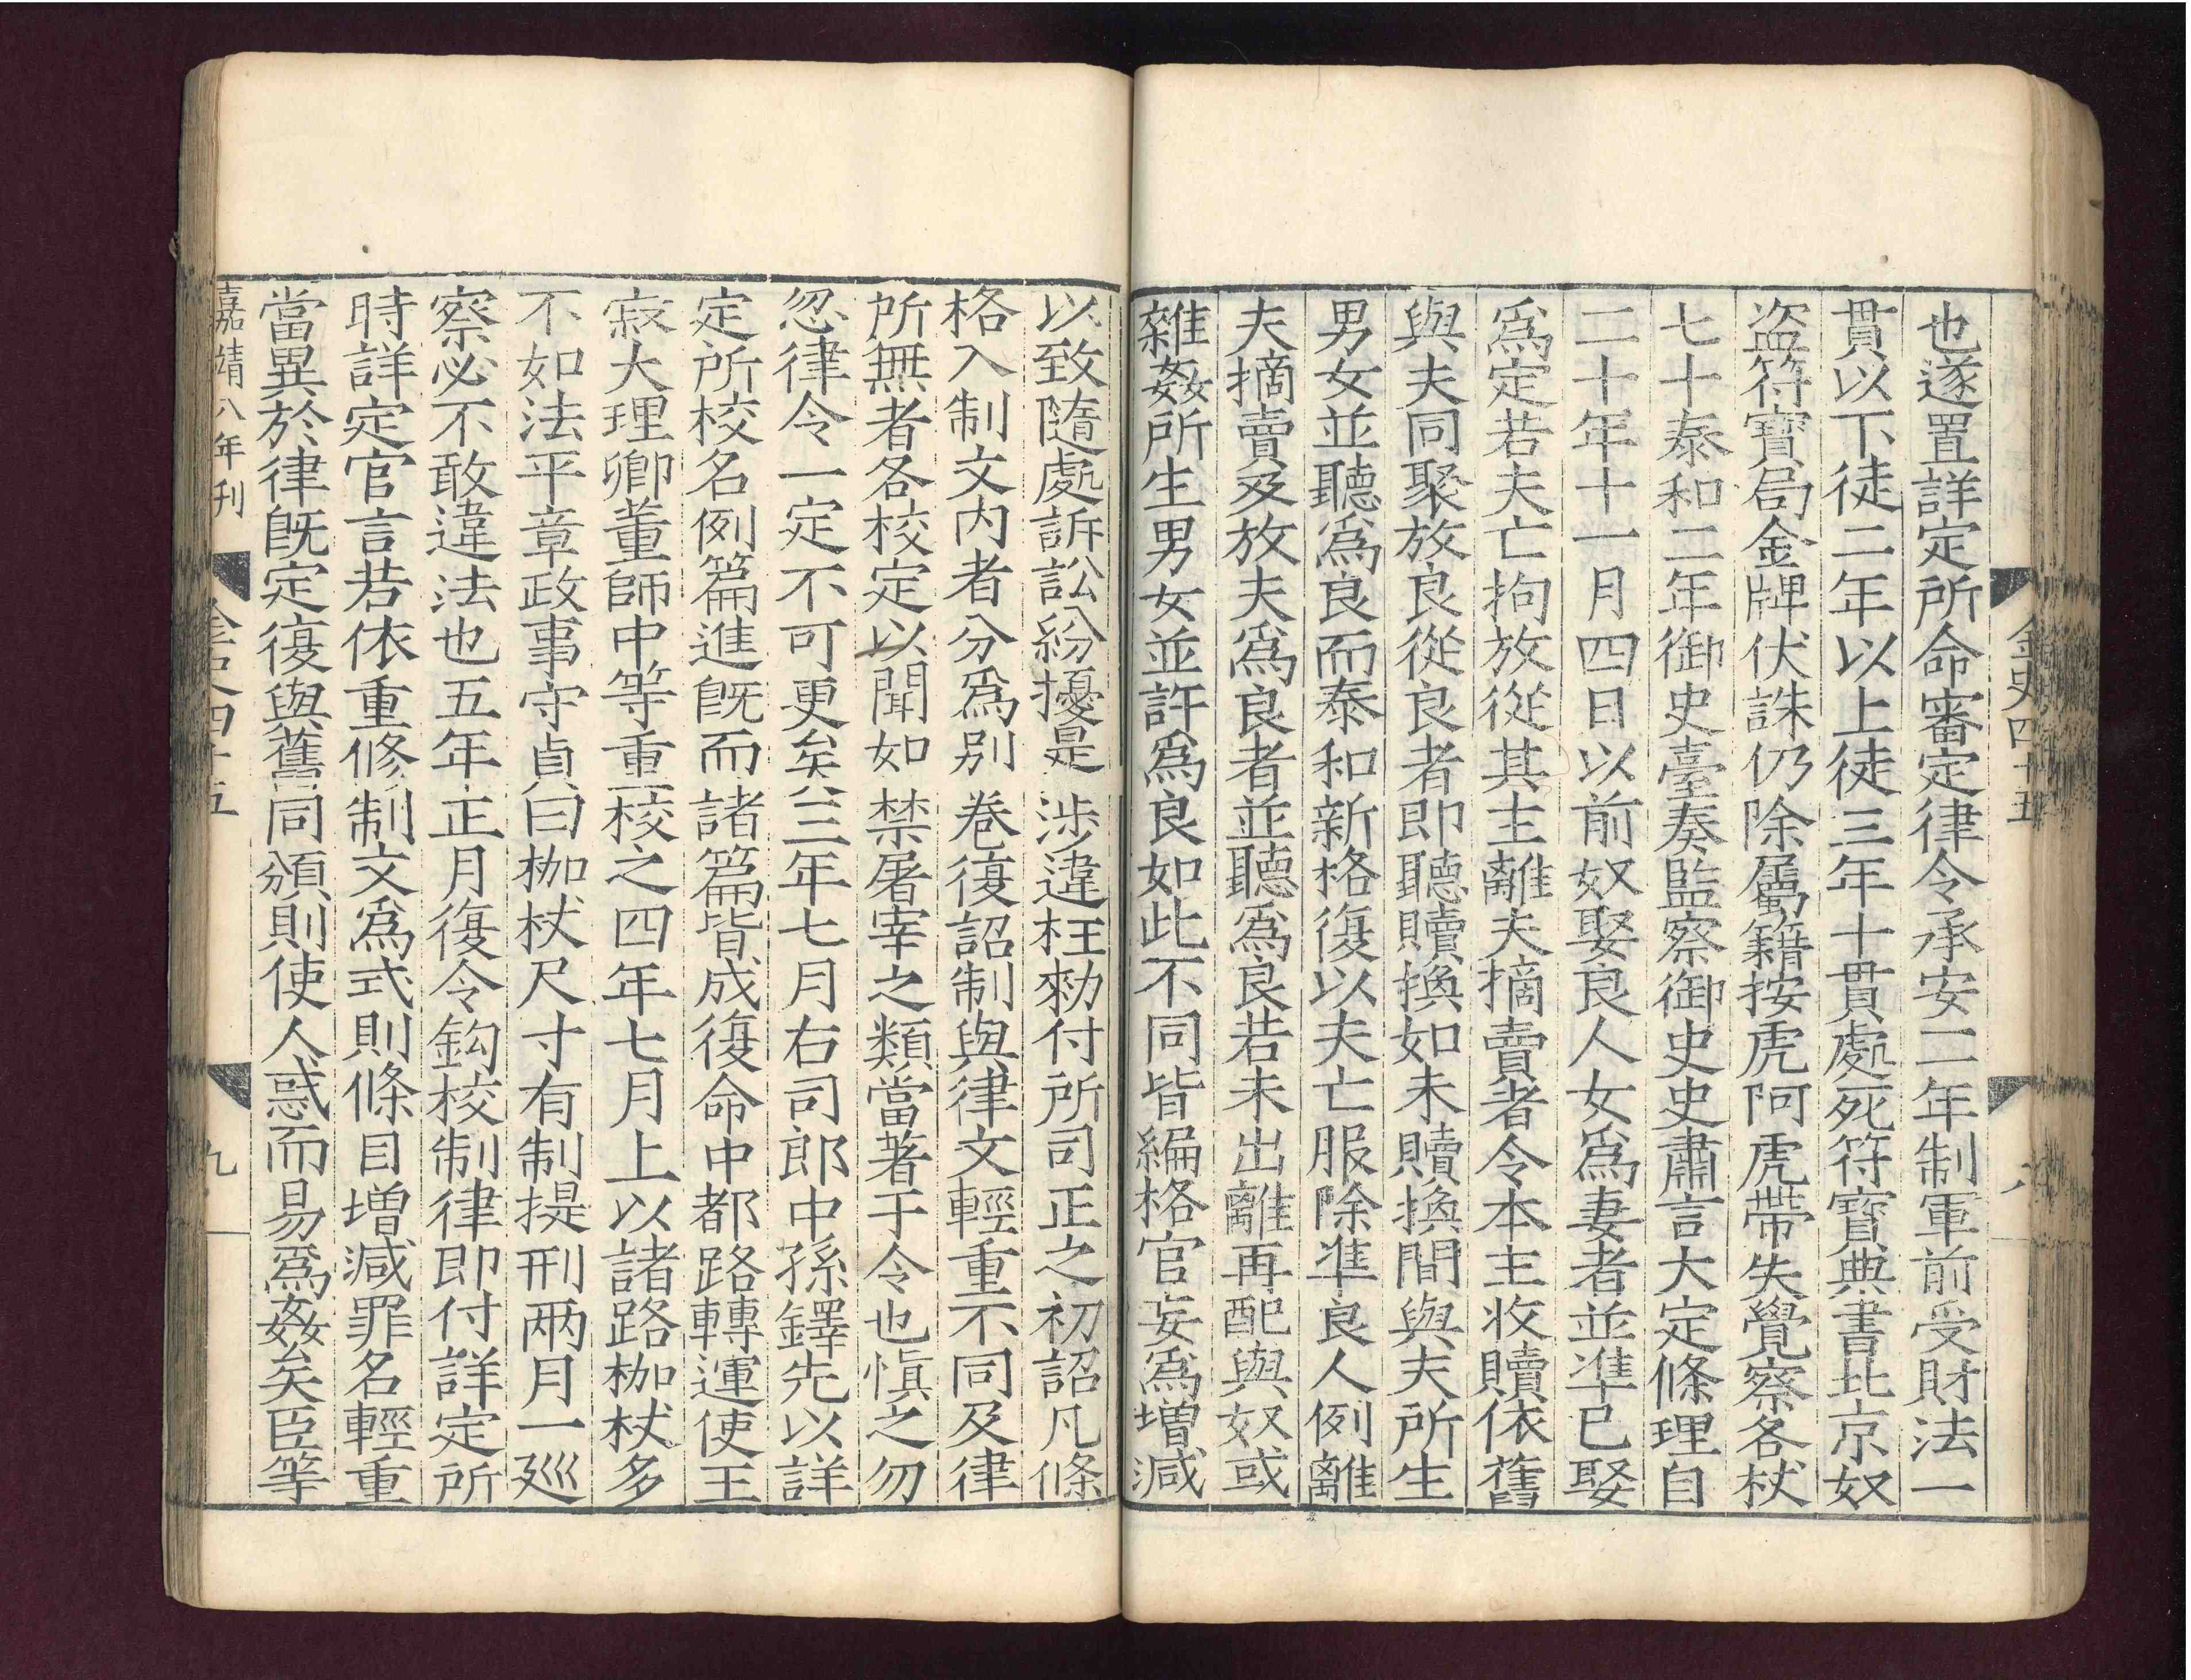 金史四十五
八
也遂置詳定所命審定律令承安二年制軍前受財法一
貫以下徒二年以上徒三年十貫處死符寶典書北京奴
盗符寶局金牌伏誅仍除屬籍按虎阿虎帶失覺察各杖
七十泰和二年御史臺奏監察御史史肅言大定條理自
二十年十一月四日以前奴娶良人女爲妻者並準已娶
爲定若夫亡拘放從其主離夫摘賣者令本主收贖依舊
與夫同聚放良從良者即聽贖換如未贖換間與夫所生
男女並聽爲良而泰和新格復以夫亡服除準良人例離
夫摘賣及放夫爲良者並聽爲良若未出離再配與奴或
雜姦所生男女並許爲良如此不同皆編格官妄爲增減
以致隨處訴訟紛擾是涉違枉勑付所司正之初詔凡條
格入制文内者分爲别卷復詔制與律文輕重不同及律
所無者各校定以聞如禁屠宰之類當著于令也慎之勿
忽律令一定不可更矣三年七月右司郎中孫鐸先以詳
定所校名例篇進既而諸篇皆成復命中都路轉運使王
寂大理卿董師中等重校之四年七月上以諸路枷杖多
不如法平章政事守貞曰枷杖尺寸有制提刑兩月一廵
察必不敢違法也五年正月復令鈎校制律即付詳定所
時詳定官言若依重修制文爲式則條目增減罪名輕重
當異於律既定復與舊同頒則使人惑而易爲姦矣臣等
嘉靖八年刊
金史四十五
九